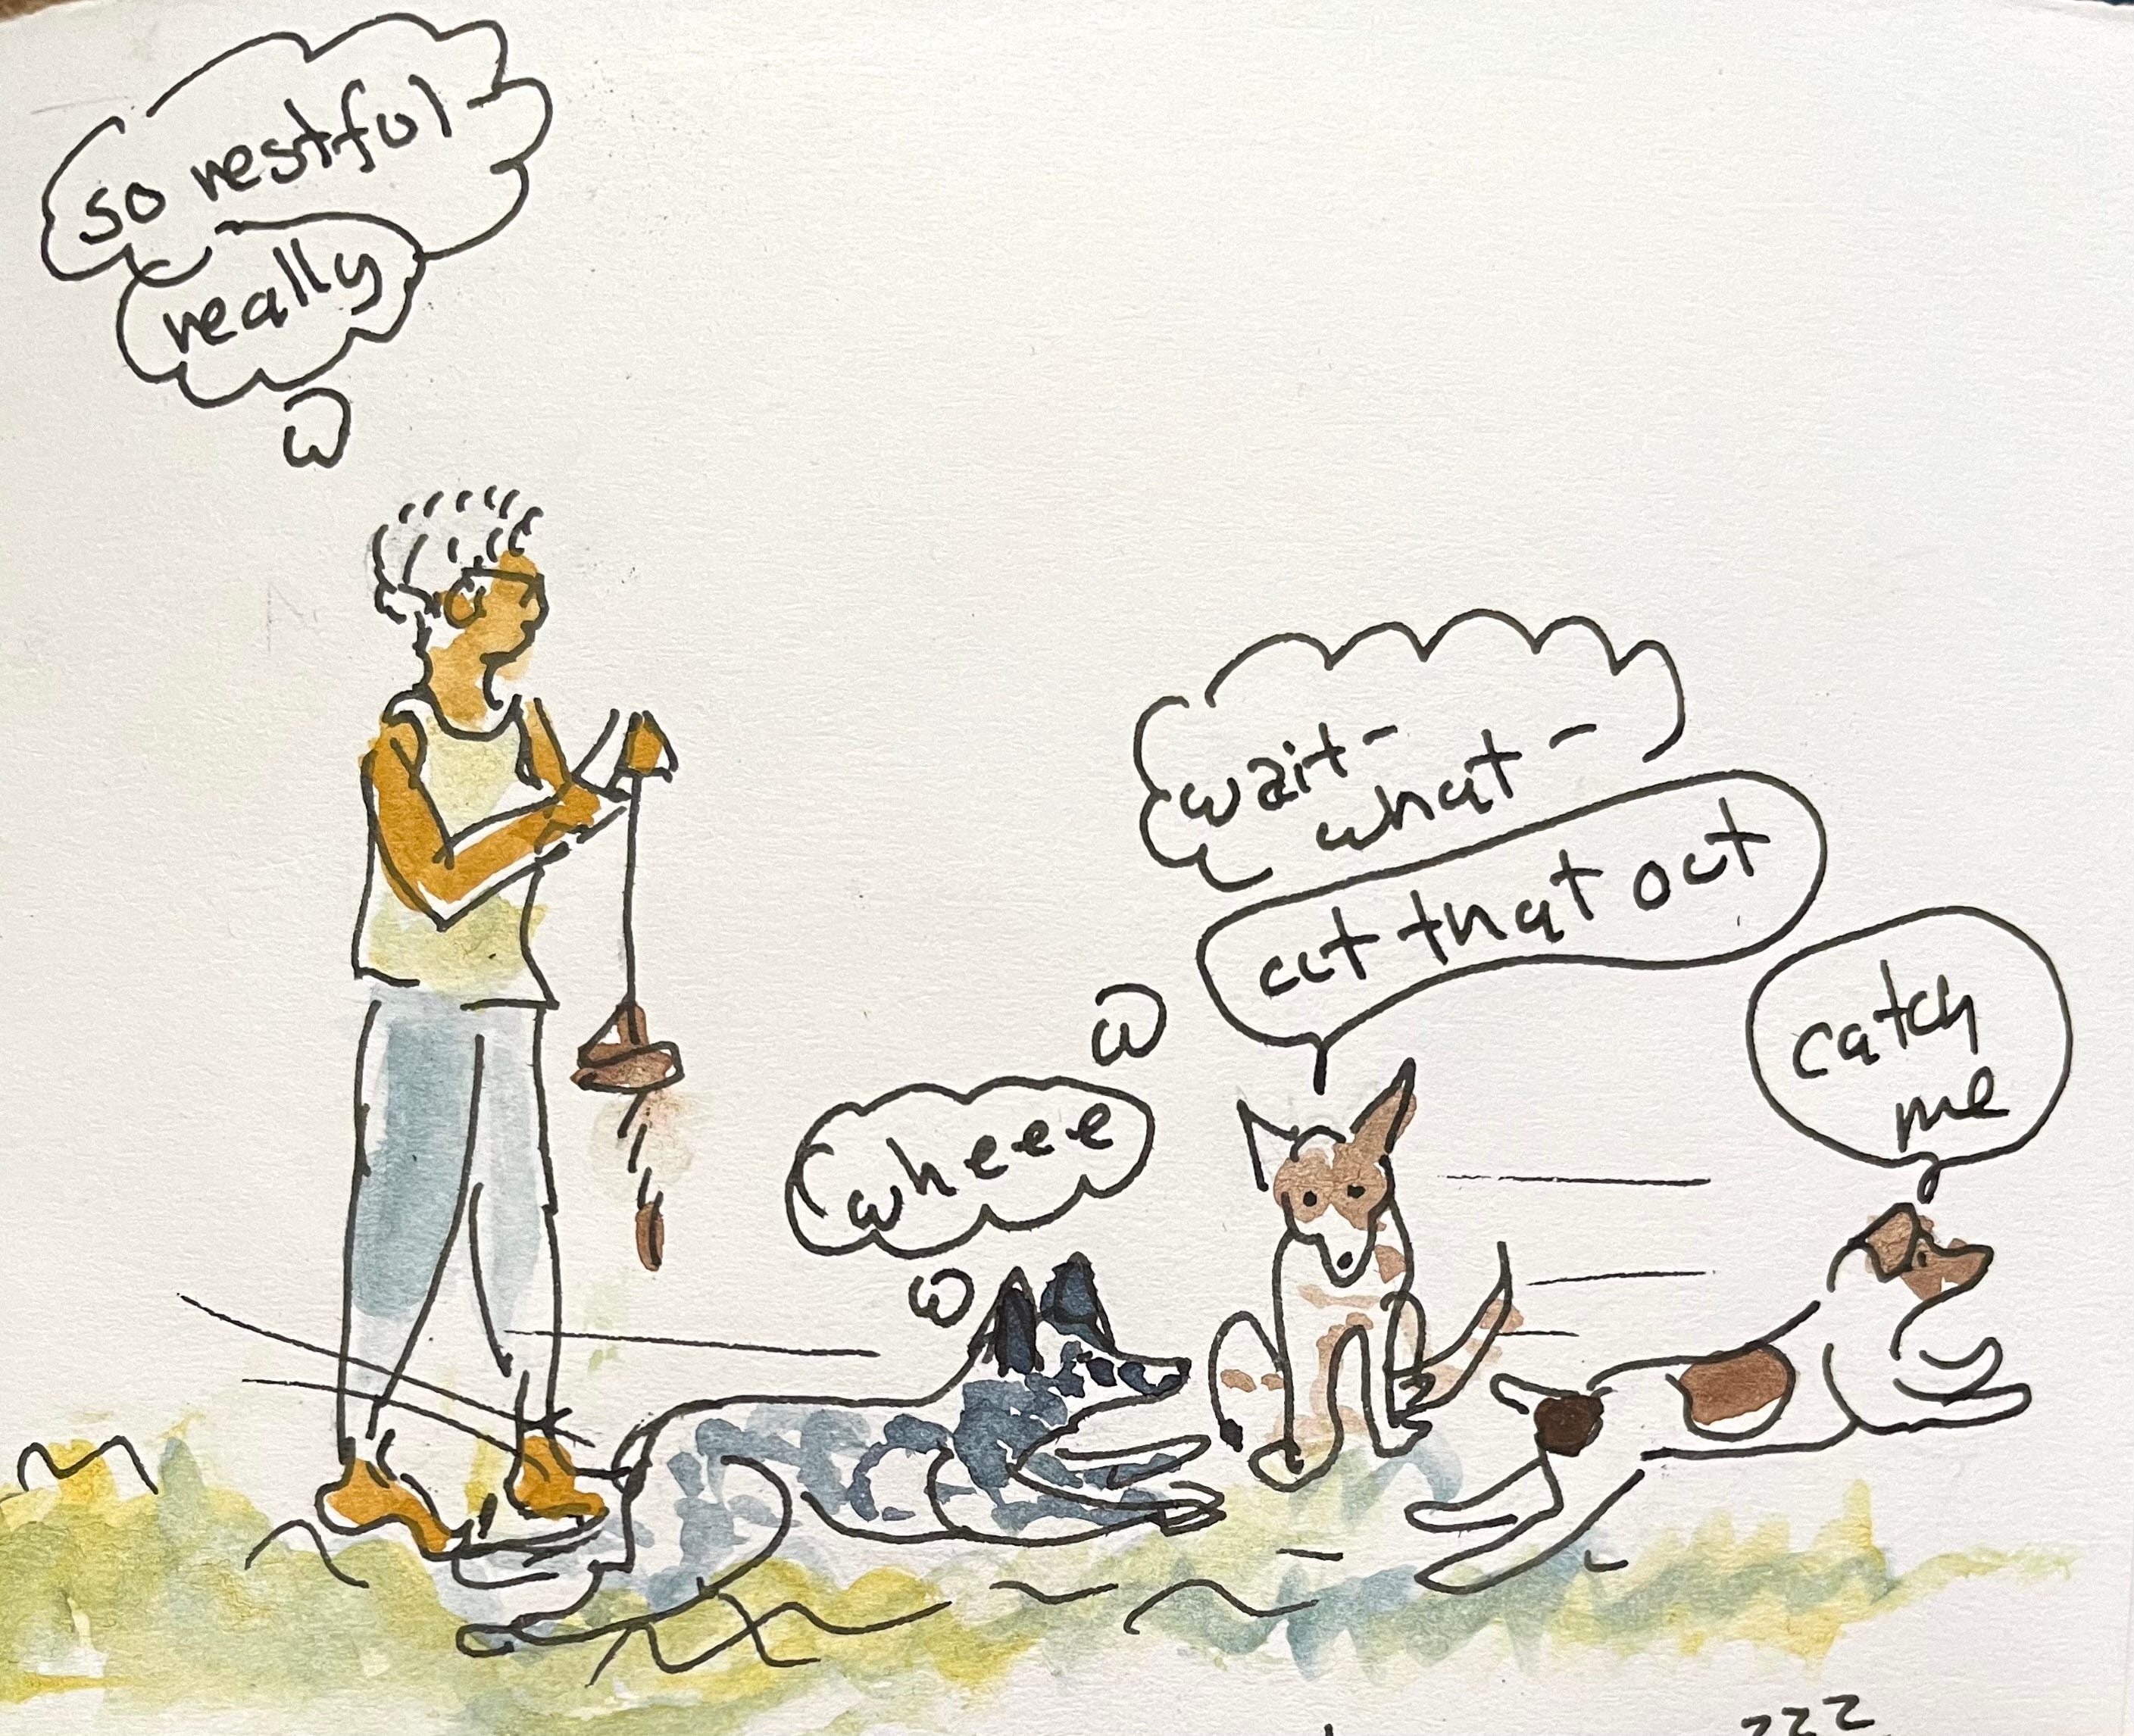 so restful -
really
wait -
what -
cut that out
catch
me
wheee
zzz